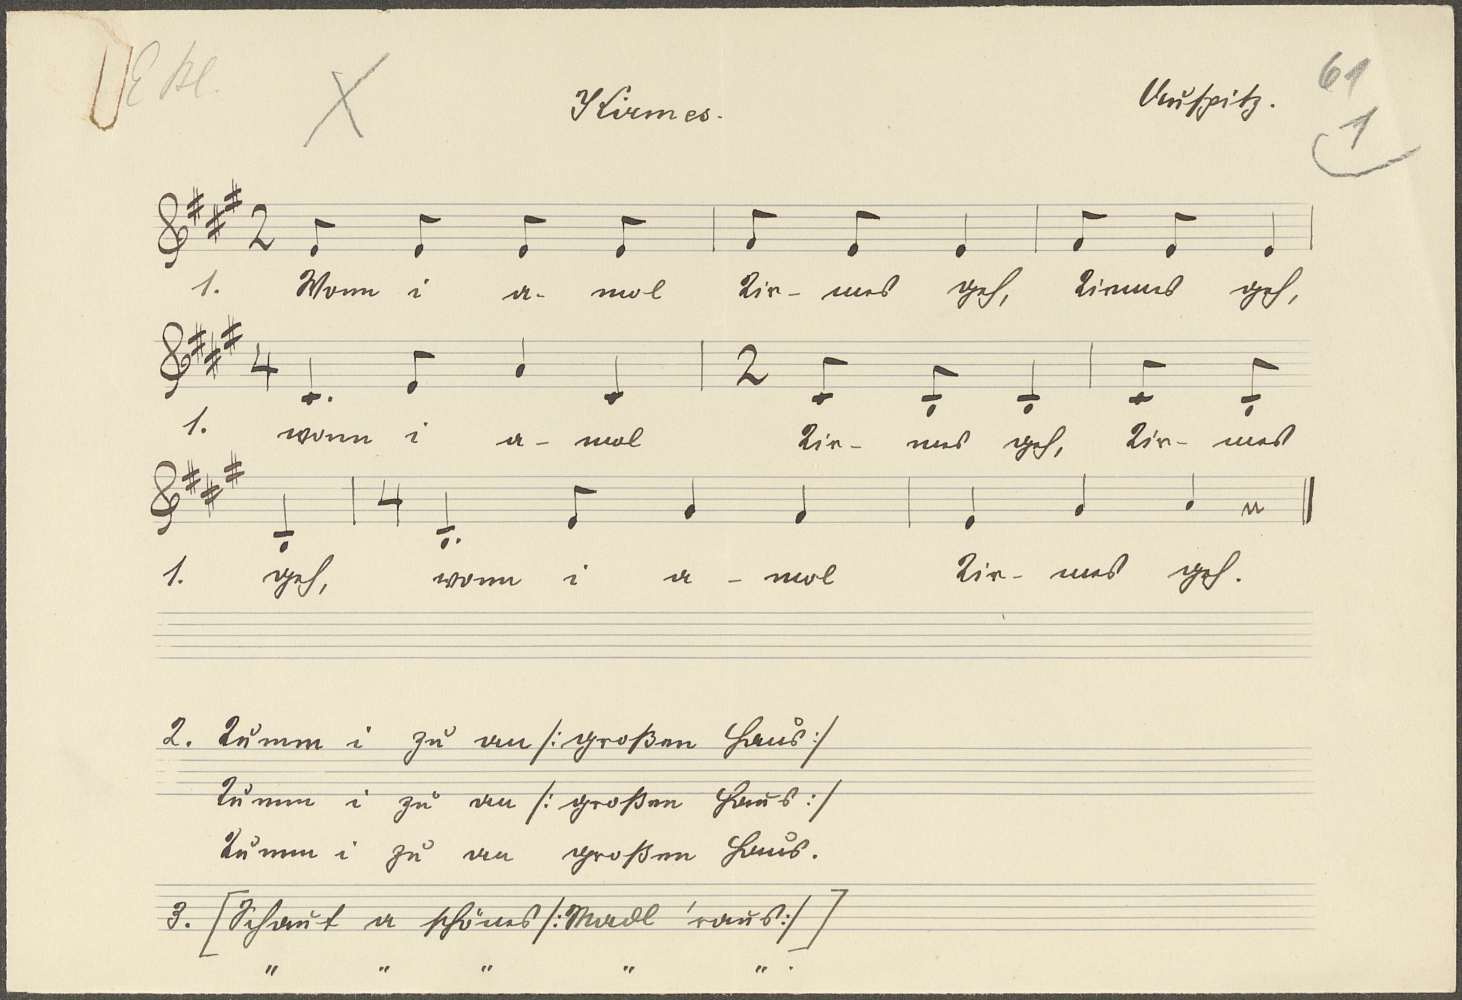 E Kl. X Kirmes. Auspitz. 61
1
2
1. Wonn i a- mol Kir- mes geh, Kirmes geh,
4 2
1. wonn i a- mol Kir- mes geh, Kir- mes
4
1. geh, wonn i a- mol Kir- mes geh.
2. Kumm i zu an /: großen Haus :/
Kumm i zu an /: großen Haus :/
Kumm i zu an großen Haus.
3. [Schaut a schönes /: Madl 'raus :/]
" " " " " .